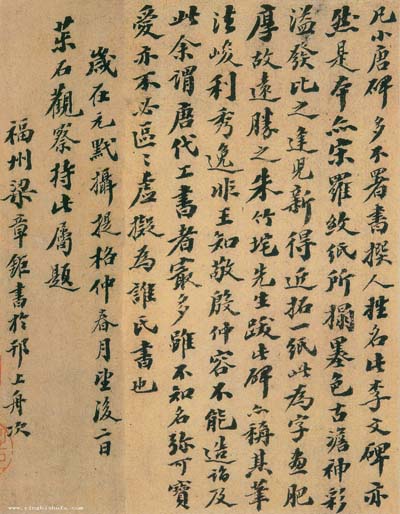 凡小唐碑多不署書撰人姓名此李文碑亦
然是本亦宋羅紋紙所搨墨色古澹神彩
溢發比之逢兒新得近拓一紙此為字畫肥
厚故遠勝之朱竹垞先生跋此碑亦稱其筆
法峻利秀逸非王知敬殷仲容不能造詣及
此余謂唐代工書者最多雖不知名弥可寶
愛亦不必區〻虛擬為誰氏書也
歲在元黓攝提格仲春月望後二日
石觀察持此屬題
福州梁章鉅書於邗上舟次
www.yingbishufa.com